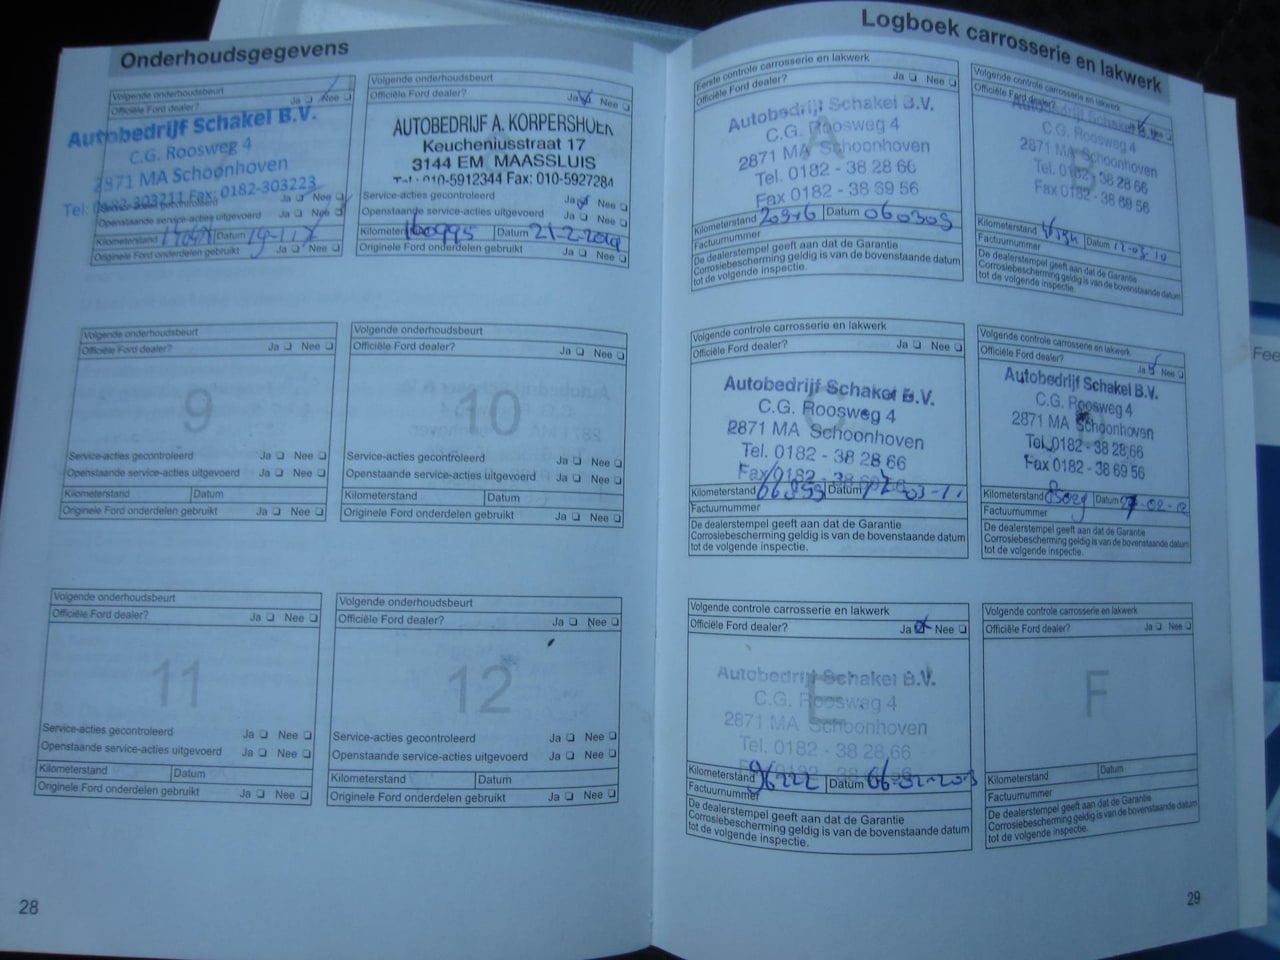 Onderhoudsgegevens
Volgende onderhoudsbeurt
Officiële Ford dealer? Ja Nee
Autobedrijf Schakel B.V.
C.G. Roosweg 4
2871 MA Schoonhoven
Tel: 0182-303211 Fax: 0182-303223
Service-acties gecontroleerd Ja Nee
Openstaande service-acties uitgevoerd Ja Nee
Kilometerstand Datum
Originele Ford onderdelen gebruikt Ja Nee
Volgende onderhoudsbeurt
Officiële Ford dealer? Ja Nee
AUTOBEDRIJF A. KORPERSHOEK
Keucheniusstraat 17
3144 EM MAASSLUIS
Tel. 010-5912344 Fax: 010-5927284
Service-acties gecontroleerd Ja Nee
Openstaande service-acties uitgevoerd Ja Nee
Kilometer 160995 Datum
Originele Ford onderdelen gebruikt Ja Nee
Volgende onderhoudsbeurt
Officiële Ford dealer? Ja Nee
9
Service-acties gecontroleerd Ja Nee
Openstaande service-acties uitgevoerd Ja Nee
Kilometerstand Datum
Originele Ford onderdelen gebruikt Ja Nee
Volgende onderhoudsbeurt
Officiële Ford dealer? Ja Nee
10
Service-acties gecontroleerd Ja Nee
Openstaande service-acties uitgevoerd Ja Nee
Kilometerstand Datum
Originele Ford onderdelen gebruikt Ja Nee
Volgende onderhoudsbeurt
Officiële Ford dealer? Ja Nee
11
Service-acties gecontroleerd Ja Nee
Openstaande service-acties uitgevoerd Ja Nee
Kilometerstand Datum
Originele Ford onderdelen gebruikt Ja Nee
Volgende onderhoudsbeurt
Officiële Ford dealer? Ja Nee
12
Service-acties gecontroleerd Ja Nee
Openstaande service-acties uitgevoerd Ja Nee
Kilometerstand Datum
Originele Ford onderdelen gebruikt Ja Nee
28
Logboek carrosserie en lakwerk
Eerste controle carrosserie en lakwerk
Officiële Ford dealer? Ja Nee
A
Autobedrijf Schakel B.V.
C.G. Roosweg 4
2871 MA Schoonhoven
Tel. 0182 - 38 28 66
Fax 0182 - 38 69 56
Kilometerstand 20976 Datum 060309
Factuurnummer
De dealerstempel geeft aan dat de Garantie
Corrosiebescherming geldig is van de bovenstaande datum
tot de volgende inspectie.
Volgende controle carrosserie en lakwerk
Officiële Ford dealer?
Autobedrijf Schakel B.V.
C.G. Roosweg 4
2871 MA Schoonhoven
Tel. 0182 - 38 28 66
Fax 0182 - 38 69 56
Kilometerstand Datum
Factuurnummer
De dealerstempel geeft aan dat de Garantie
Corrosiebescherming geldig is van de bovenstaande datum
tot de volgende inspectie.
Volgende controle carrosserie en lakwerk
Officiële Ford dealer? Ja Nee
Autobedrijf Schakel B.V.
C.G. Roosweg 4
2871 MA Schoonhoven
Tel. 0182 - 38 28 66
Fax 0182 - 38 69 56
Kilometerstand Datum
Factuurnummer
De dealerstempel geeft aan dat de Garantie
Corrosiebescherming geldig is van de bovenstaande datum
tot de volgende inspectie.
Volgende controle carrosserie en lakwerk
Officiële Ford dealer? Ja Nee
Autobedrijf Schakel B.V.
C.G. Roosweg 4
2871 MA Schoonhoven
Tel. 0182 - 38 28 66
Fax 0182 - 38 69 56
Kilometerstand Datum
Factuurnummer
De dealerstempel geeft aan dat de Garantie
Corrosiebescherming geldig is van de bovenstaande datum
tot de volgende inspectie.
Volgende controle carrosserie en lakwerk
Officiële Ford dealer? Ja Nee
E
Autobedrijf Schakel B.V.
C.G. Roosweg 4
2871 MA Schoonhoven
Tel. 0182 - 38 28 66
Kilometerstand 96222 Datum
Factuurnummer
De dealerstempel geeft aan dat de Garantie
Corrosiebescherming geldig is van de bovenstaande datum
tot de volgende inspectie.
Volgende controle carrosserie en lakwerk
Officiële Ford dealer? Ja Nee
F
Kilometerstand Datum
Factuurnummer
De dealerstempel geeft aan dat de Garantie
Corrosiebescherming geldig is van de bovenstaande datum
tot de volgende inspectie.
29
Fee